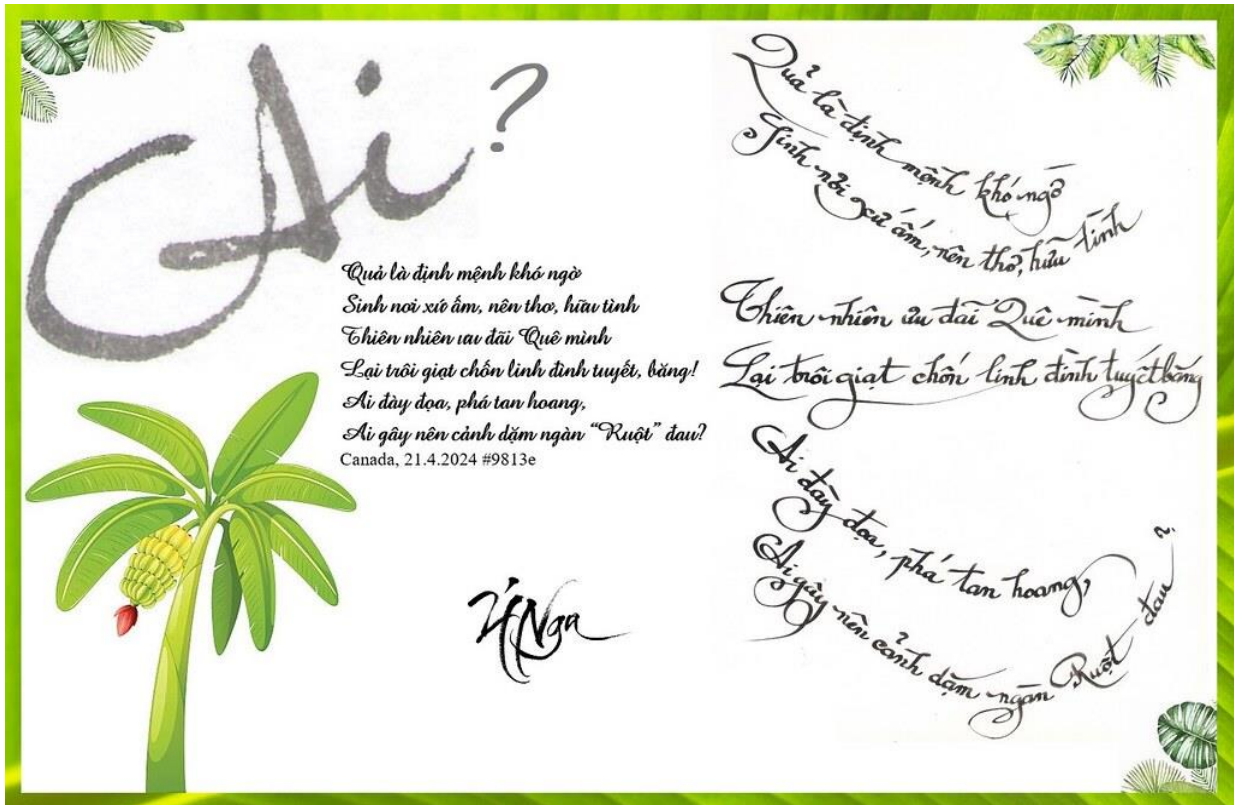 Ai?
Quả là định mệnh khó ngờ
Sinh nơi xứ ấm, nên thơ, hữu tình
Thiên nhiên ưu đãi Quê mình
Lại trôi giạt chốn linh đình tuyết, băng!
Ai đày đọa, phá tan hoang,
Ai gây nên cảnh dặm ngàn “Ruột” đau?
Canada, 21.4.2024 #9813e
Ý Nga
Quả là định mệnh khó ngờ
Sinh nơi xứ ấm, nên thơ, hữu tình
Thiên nhiên ưu đãi Quê mình
Lại trôi giạt chốn linh đình tuyết băng
Ai đày đọa, phá tan hoang,
Ai gây nên cảnh dặm ngàn Ruột đau?